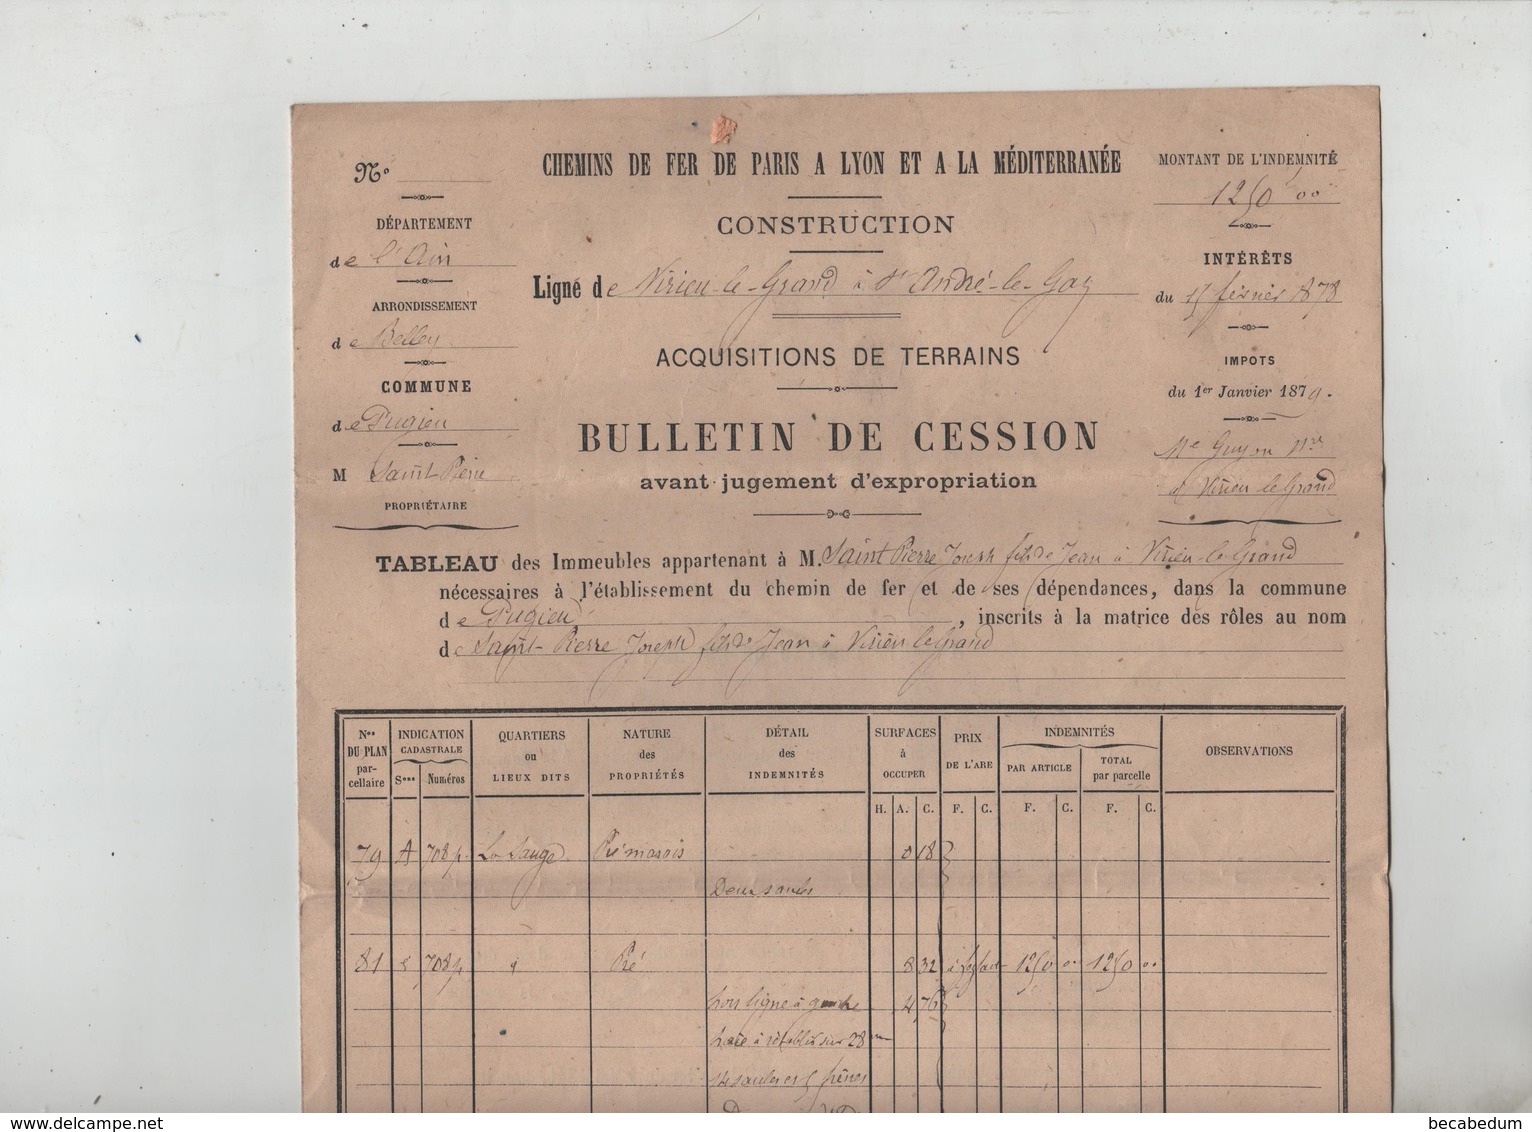 N°
DÉPARTEMENT
de l'Ain
ARRONDISSEMENT
de Belley
COMMUNE
de Pugieu
M Saint Pierre
PROPRIÉTAIRE
CHEMINS DE FER DE PARIS A LYON ET A LA MÉDITERRANÉE
CONSTRUCTION
Ligne de Virieu-le-Grand à St André-le-Gaz
ACQUISITIONS DE TERRAINS
BULLETIN DE CESSION
avant jugement d'expropriation
MONTANT DE L'INDEMNITÉ
1250 00
INTÉRÊTS
du 15 février 1878
IMPOTS
du 1er Janvier 1879.
Me Guyon Nre
à Virieu le Grand
TABLEAU des Immeubles appartenant à M. Saint Pierre Joseph fils de Jean à Virieu-le-Grand
nécessaires à l'établissement du chemin de fer et de ses dépendances, dans la commune
de Pugieu, inscrits à la matrice des rôles au nom
de Saint-Pierre Joseph fils de Jean à Virieu le Grand
Nos DU PLAN par-cellaire
INDICATION CADASTRALE
Sons Numéros
QUARTIERS ou LIEUX DITS
NATURE des PROPRIÉTÉS
DÉTAIL des INDEMNITÉS
SURFACES à OCCUPER
PRIX DE L'ARE
INDEMNITÉS
PAR ARTICLE
TOTAL par parcelle
OBSERVATIONS
H. A. C. F. C. F. C. F. C.
79 A 708 p. La Sauge Pré marais 0 18
Deux saules
81 " 708 p. " Pré 8 32 à forfait 1250 00 1250 00
hors ligne à gauche 4 76
haie à rétablir sur 28 m
14 saules et 5 frênes
becabedum